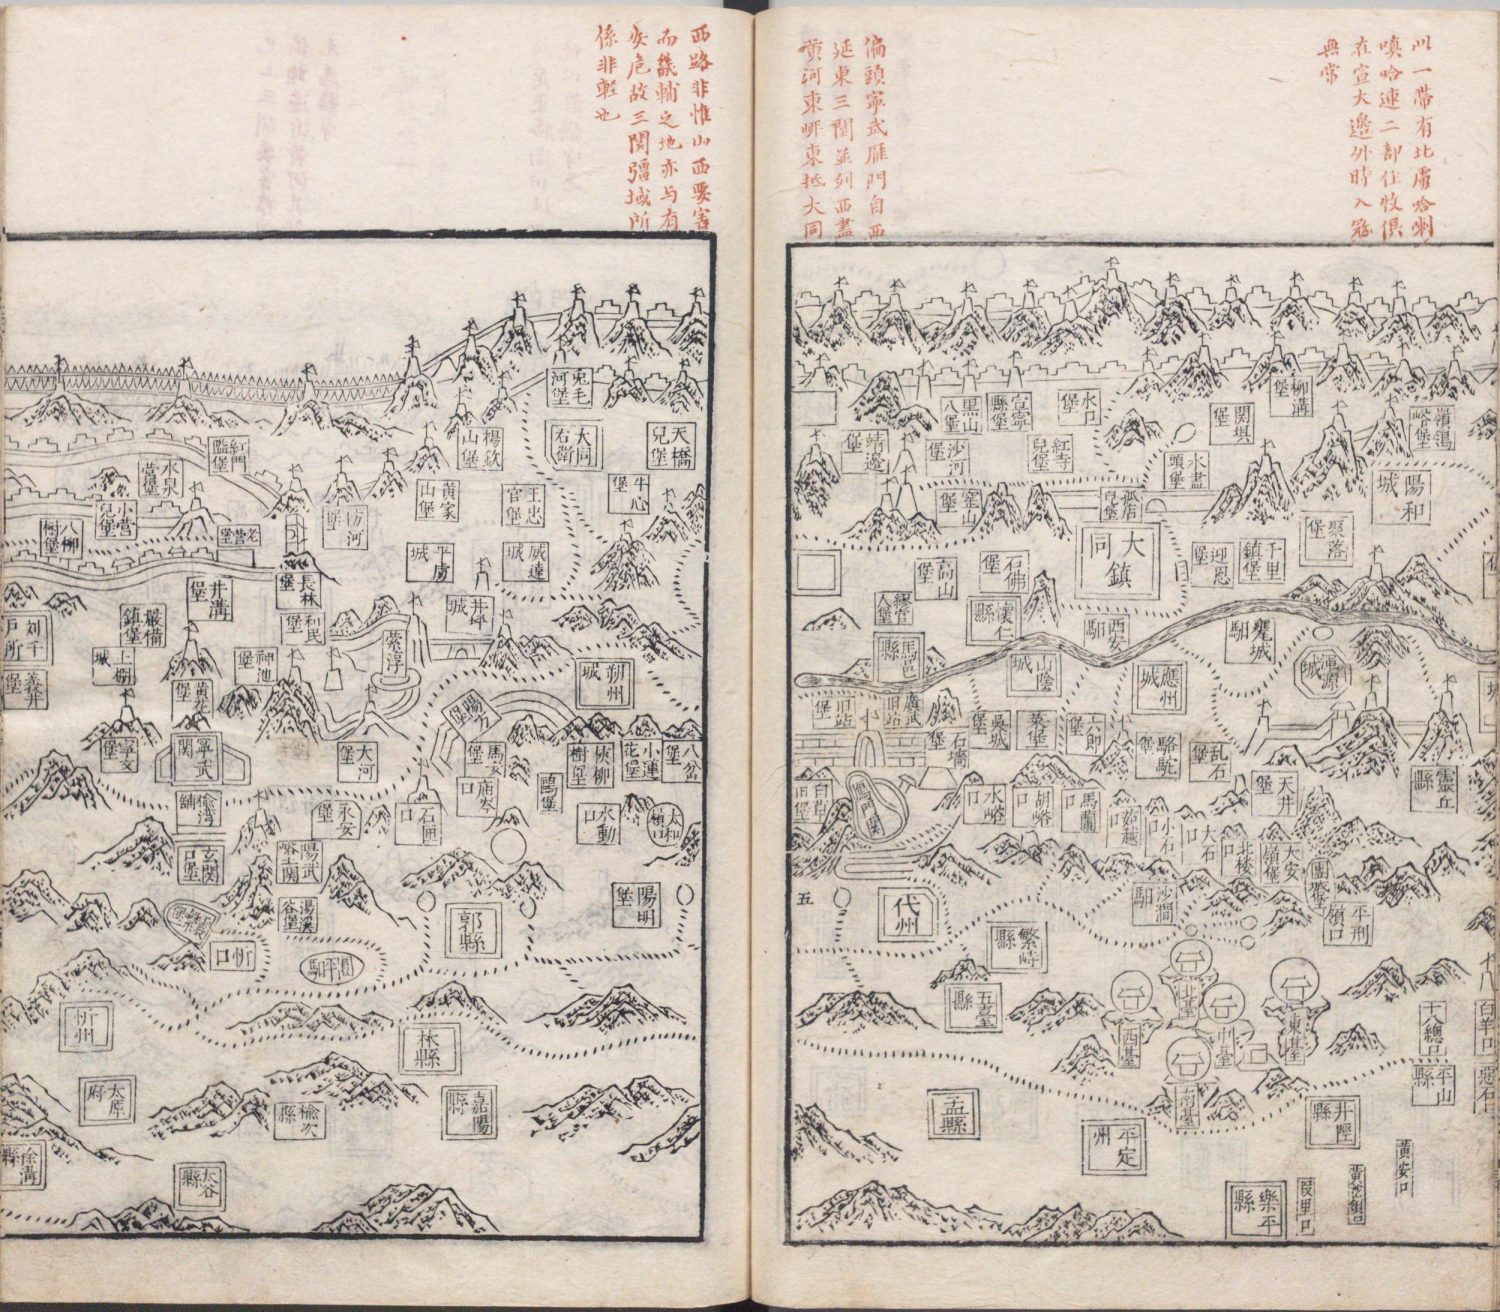 川一帶有北虜哈喇
嗔哈連二部住牧俱
在宣大邊外時入寇
無常
偏頭寧武雁門自西
延東三関並列西盡
黄河東岍東抵大同
西路非惟山西要害
而畿輔之地亦与有
安危故三関彊域所
係非輕也
柳溝堡
水口堡
宣寧縣堡
黒山八堡
靖邉堡
沙河堡
紅寺兒堡
水盡頭堡
陽和城
窰山堡
聚落堡
大同鎮
千里鎮堡
迎恩堡
石佛堡
高山堡
懷仁縣
西安馹
甕城馹
馬邑縣
山隂城
應州城
渾源城
廣武旧站
旧站堡
吳城堡
六郎堡
駱駝堡
乱石堡
石墻堡
天井堡
靈丘縣
白草旧堡
雁門関
水峪口
胡峪口
馬蘭口
茹越口
小石口
大石口
北楼口
大安嶺堡
團城堡
平刑嶺口
沙澗馹
五
代州
繁峙縣
五臺縣
北臺
西臺
中臺
東臺
南臺
十八總口
白羊口
惡石口
平山縣
井陘縣
盂縣
平定州
樂平縣
黄安口
兎毛河堡
天橋兒堡
大同右衛
楊欽山堡
紅門隘堡
水泉營堡
牛心堡
王忠官堡
黄家山堡
小營兒堡
老營堡
八柳樹堡
威逺城
平虜城
長林堡
井溝堡
井坪城
利民堡
嚴備鎮堡
神池堡
上棚城
義井堡
黄花堡
朔州城
陽方堡
大河堡
寧武関
寧文堡
馬安堡
小蓮花堡
八岔堡
石匣口
永安堡
水動口
太和嶺口
玄関口堡
陽武峪土関
湯溪谷堡
郭縣
陽明堡
忻口
圓平馹
忻州
林縣
太原府
榆次縣
嘉陽縣
徐溝縣
太谷縣